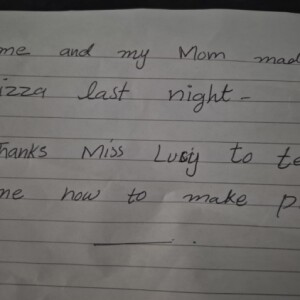 me and my Mom mad
izza last night -
hanks Miss Lucy to te
me how to make p